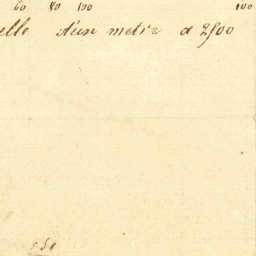 60 80 100 100
elle d'un metre a 2500